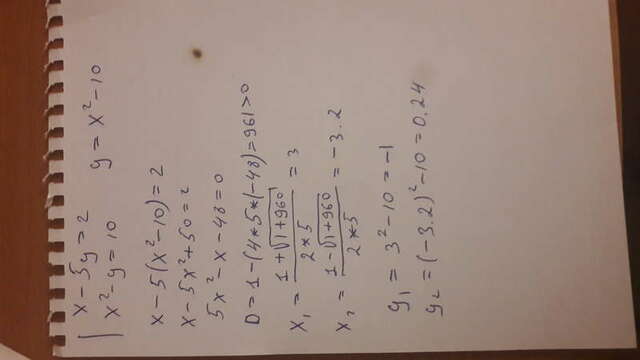 x - 5y = 2
x² - y = 10 y = x² - 10
x - 5(x² - 10) = 2
x - 5x² + 50 = 2
5x² - x - 48 = 0
D = 1 - (4*5*(-48) = 961 > 0
x₁ = (1 + √(1 + 960)) / (2*5) = 3
x₂ = (1 - √(1 + 960)) / (2*5) = -3.2
y₁ = 3² - 10 = -1
y₂ = (-3.2)² - 10 = 0.24